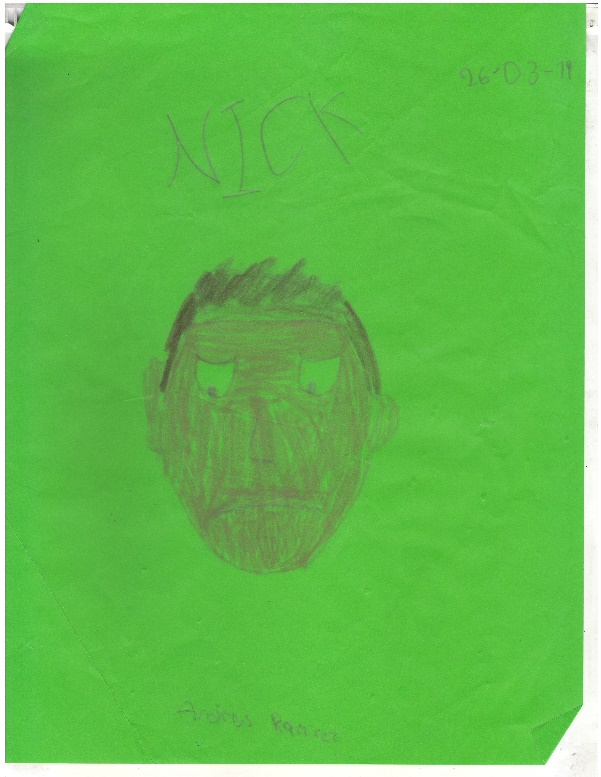 26-03-19
NICK
Andres Ramirez